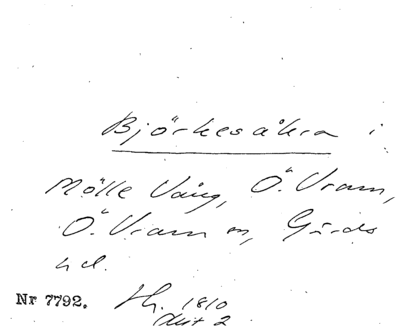 Björkesåkra i
Mölle Vång, Ö. Vram,
Ö. Vram sn, Gärds
hd.
Nr 7792. Hg. 1810
Akt 2